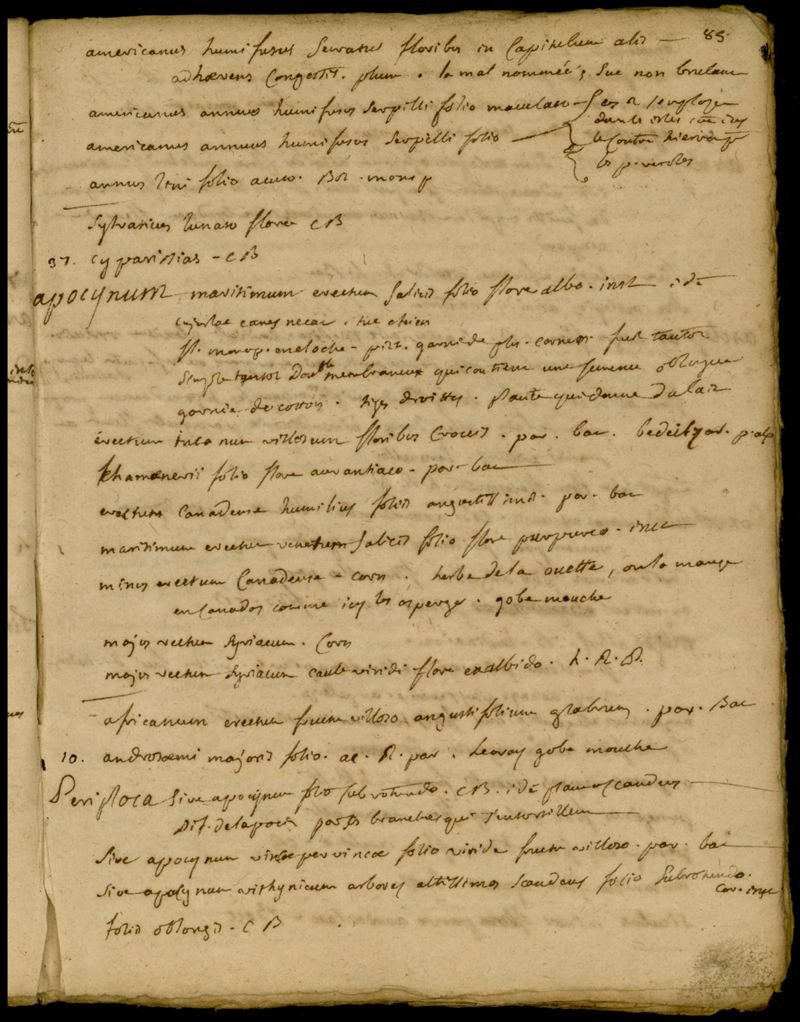 85
americanus humifusus serratus floribus in Capitulum alis
adhaerens Congestis. plum. le mal nommée, Suc non brulant
americanus annuus humifusus serpilli folio maculato
americanus annuus humifusus serpilli folio
dans les isles
le Contre
les p. veroles
annuus leni folio acuto. Bot. monsp
sylvaticus lunato flore CB
37. cyparissias - CB
apocynum maritimum erectum salicis folio flore albo. inst
canes necat, tue chien
fl. monop. en cloche - pist. garni de ptes. cornets fruit tantot
simple tantot Double membraneux qui contient une semence oblongue
garnie de coton. tiges droittes. plante qui donne du lait
erectum incanum villosum floribus Croceis. par. bat. p. alp
khamaenerii folio flore aurantiaco - par. bat
erectum Canadense humilius foliis angustissimis. par. bat
maritimum erectum venetum salicis folio flore purpureo. inst
minus erectum Canadense - corn. herbe de la ouette, on la mange
en Canadas comme icy les asperges. gobe mouche
majus rectum syriacum. Corn
majus rectum syriacum caule viridi flore exalbido. h. R. P.
africanum erectum fructu villoso angustifolium glabrum. par. Bat
10. androsaemi majoris folio. ac. R. par. gobe mouche
Periploca sive apocynum folio subrotundo. CB. idē scandens
Dif. de lapocin par ses branches qui s'entortillent
sive apocynum vincae pervincae folio viride fructu villoso. par. bat
sive apocynum withynicum arbores altissimas scandens folio subrotundo.
Cor. inst
foliis oblongis. CB